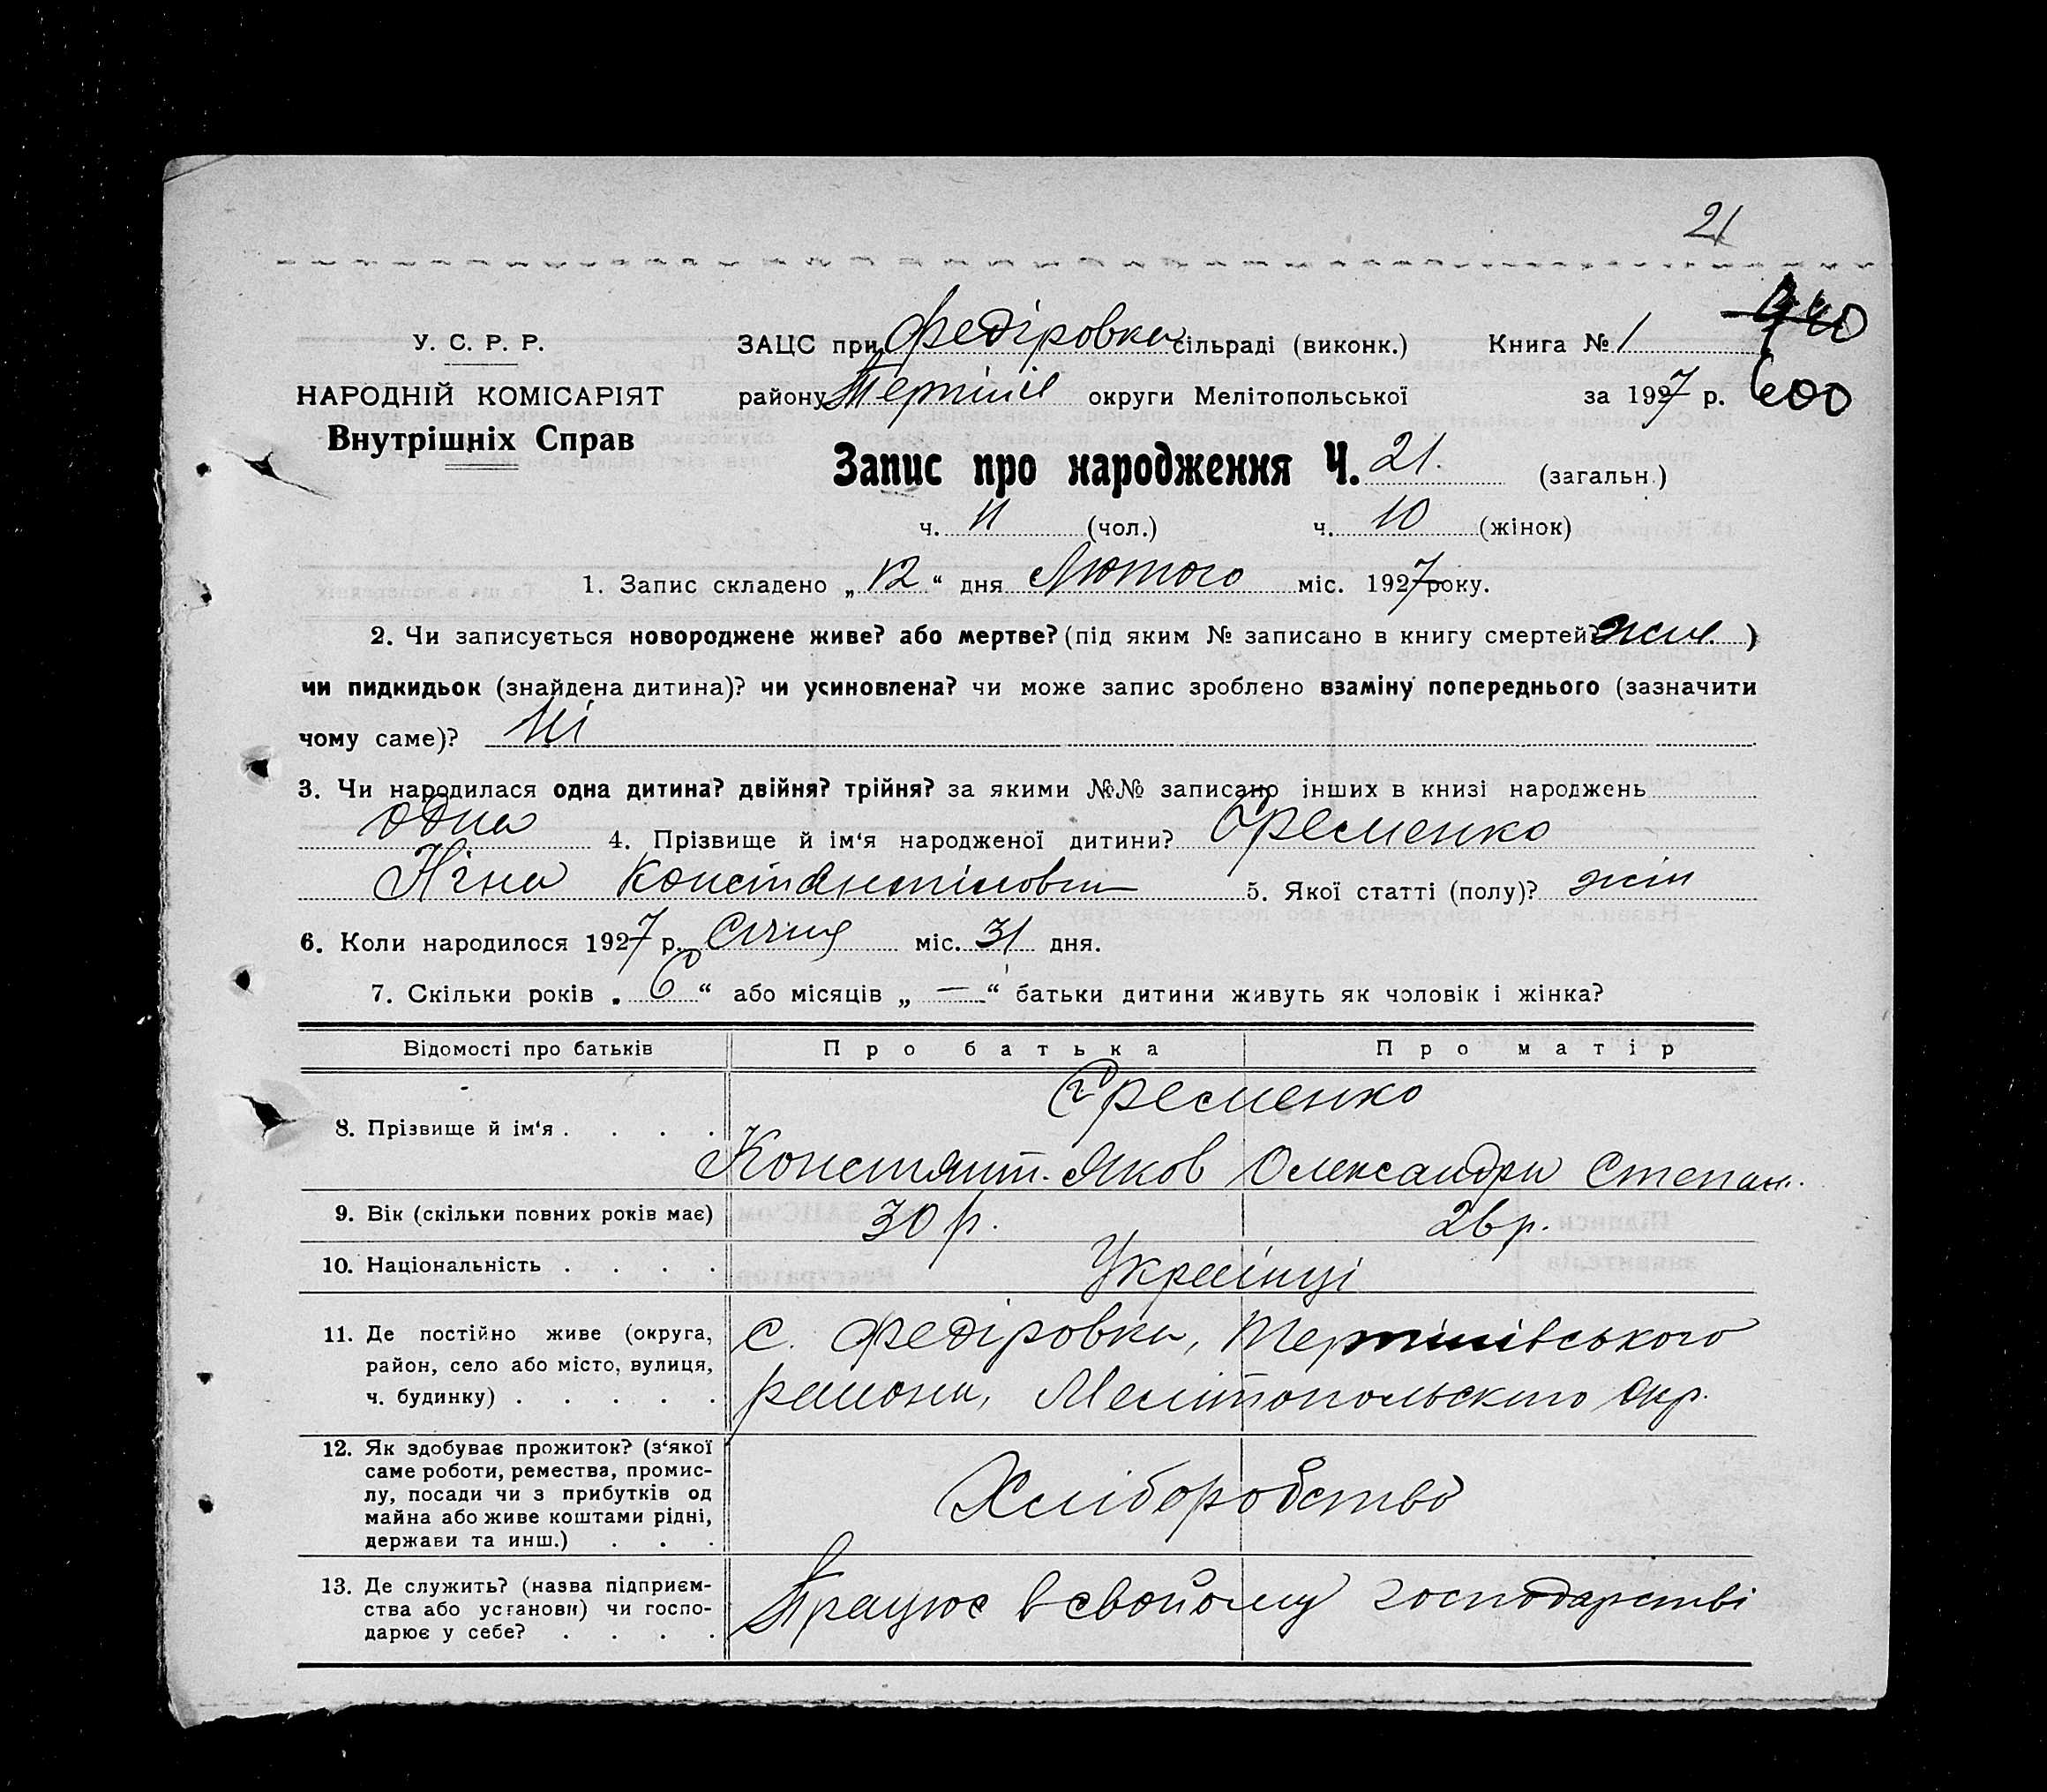 21
У. С. Р. Р.
НАРОДНІЙ КОМІСАРІЯТ
Внутрішніх Справ
ЗАЦС при Федіровка сільраді (виконк.) Книга № 1 740
району Терпініє округи Мелітопольської за 1927 р. 600
Запис про народження Ч. 21. (загальн.)
ч. 11 (чол.) ч. 10 (жінок)
1. Запис складено „12“ дня Лютого міс. 1927 року.
2. Чи записується новороджене живе? або мертве? (під яким № записано в книгу смертей? жив. )
чи пидкидьок (знайдена дитина)? чи усиновлена? чи може запис зроблено взаміну попереднього (зазначити
чому саме)? Ні
3. Чи народилася одна дитина? двійня? трійня? за якими №№ записано інших в книзі народжень
одна 4. Прізвище й ім‘я народженої дитини? Єременко
Ніна Константіновна 5. Якої статті (полу)? жін
6. Коли народилося 1927 р. Січня міс. 31 дня.
7. Скільки років „6“ або місяців „—“ батьки дитини живуть як чоловік і жінка?
Відомості про батьків Про батька Про матір
8. Прізвище й ім‘я . . . . Єременко
Константт. Яков Олександра Степан.
9. Вік (скільки повних років має) 30 р. 26 р.
10. Національність . . . . Українці
11. Де постійно живе (округа,
район, село або місто, вулиця,
ч. будинку) . . . . .
с. Федіровка, Терпінівського
района, Мелітопольского окр.
12. Як здобуває прожиток? (з‘якої
саме роботи, ремества, промис-
лу, посади чи з прибутків од
майна або живе коштами рідні,
держави та инш.) . . .
Хліборобство
13. Де служить? (назва підприєм-
ства або установи) чи госпо-
дарює у себе? . . . .
Працює в свойому господарстві